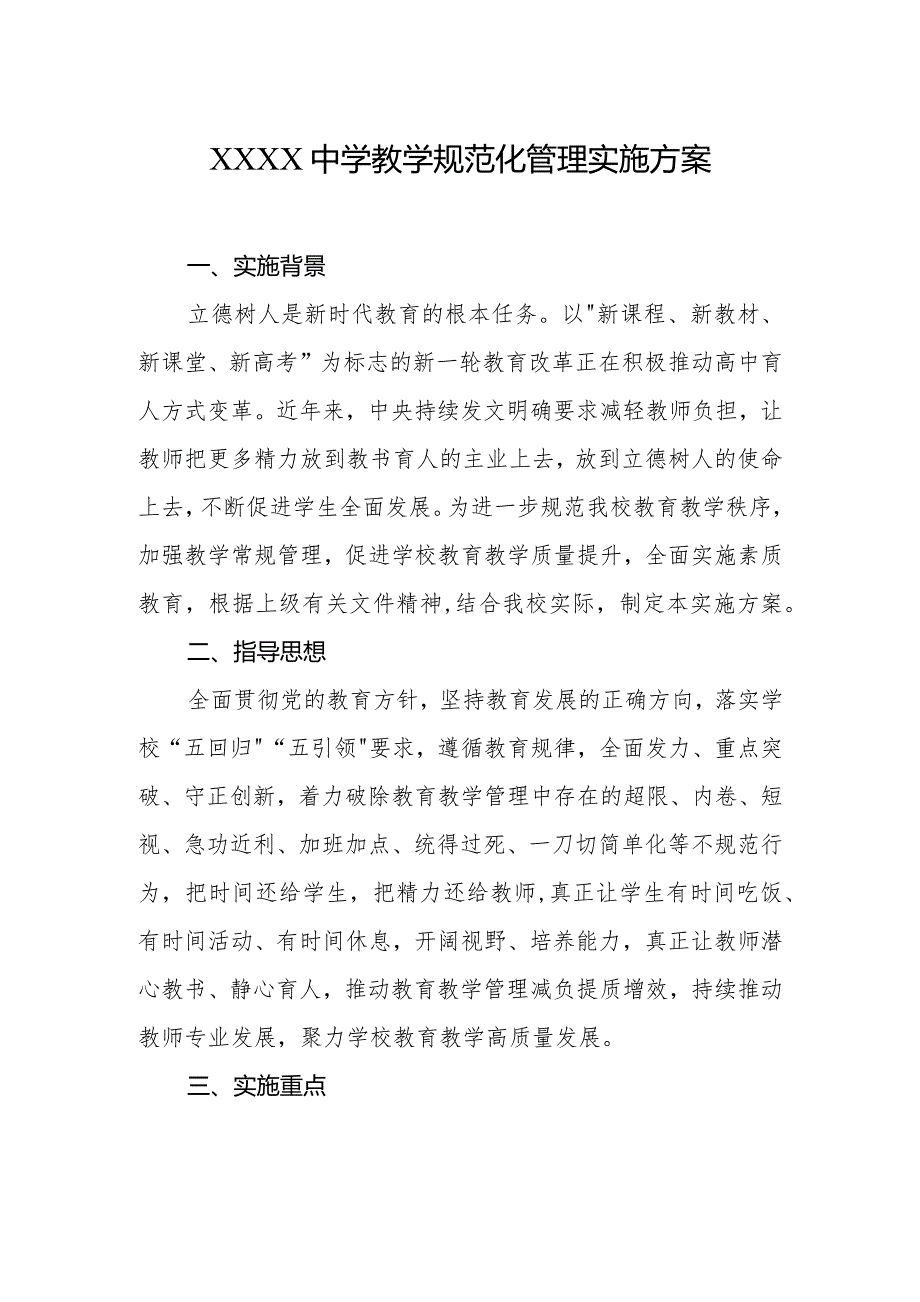 XXXX 中学教学规范化管理实施方案
一、实施背景
立德树人是新时代教育的根本任务。以"新课程、新教材、
新课堂、新高考”为标志的新一轮教育改革正在积极推动高中育
人方式变革。近年来，中央持续发文明确要求减轻教师负担，让
教师把更多精力放到教书育人的主业上去，放到立德树人的使命
上去，不断促进学生全面发展。为进一步规范我校教育教学秩序，
加强教学常规管理，促进学校教育教学质量提升，全面实施素质
教育，根据上级有关文件精神,结合我校实际，制定本实施方案。
二、指导思想
全面贯彻党的教育方针，坚持教育发展的正确方向，落实学
校“五回归"“五引领"要求，遵循教育规律，全面发力、重点突
破、守正创新，着力破除教育教学管理中存在的超限、内卷、短
视、急功近利、加班加点、统得过死、一刀切简单化等不规范行
为，把时间还给学生，把精力还给教师,真正让学生有时间吃饭、
有时间活动、有时间休息，开阔视野、培养能力，真正让教师潜
心教书、静心育人，推动教育教学管理减负提质增效，持续推动
教师专业发展，聚力学校教育教学高质量发展。
三、实施重点